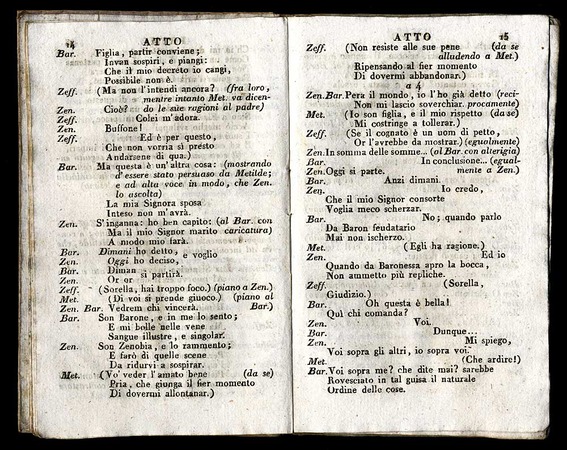 14 ATTO
Bar. Figlia, partir conviene;
Invan sospiri, e piangi:
Che il mio decreto io cangi,
Possibile non è.
Zeff. (Ma non l'intendi ancora? (fra loro,
mentre intanto Met. va dicen-
Zen. Cioè? do le sue ragioni al padre)
Zeff. Colei m'adora.
Zen. Buffone!
Zeff. Ed è per questo,
Che non vorria sì presto
Andarsene di qua.)
Bar. Ma questa è un'altra cosa: (mostrando
d'essere stato persuaso da Metilde;
e ad alta voce in modo, che Zen.
lo ascolta)
La mia Signora sposa
Inteso non m'avrà.
Zen. S'inganna: ho ben capito: (al Bar. con
Ma il mio Signor marito caricatura)
A modo mio farà.
Bar. Dimani ho detto, e voglio
Zen. Oggi ho deciso,
Bar. Diman si partirà.
Zen. Or or
Zeff. (Sorella, hai troppo foco.) (piano a Zen.)
Met. (Di voi si prende giuoco.) (piano al
Zen. Bar. Vedrem chi vincerà. Bar.)
Bar. Son Barone, e in me lo sento;
E mi bolle nelle vene
Sangue illustre, e singolar.
Zen. Son Zenobia, e lo rammento;
E farò di quelle scene
Da ridurvi a sospirar.
Met. (Vo' veder l'amato bene (da se)
Pria, che giunga il fier momento
Di dovermi allontanar.)
ATTO 15
Zeff. (Non resiste alle sue pene (da se
alludendo a Met.)
Ripensando al fier momento
Di dovermi abbandonar.)
a 4
Zen.Bar. Pera il mondo, io l'ho già detto (reci-
Non mi lascio soverchiar. procamente)
Met. (Io son figlia, e il mio rispetto (da se)
Mi costringe a tollerar.)
Zeff. (Se il cognato è un uom di petto,
Or l'avrebbe da mostrar.) (egualmente)
Zen. In somma delle somme... (al Bar. con alterigia)
Bar. In conclusione... (egual-
Zen. Oggi si parte. mente a Zen.)
Bar. Anzi dimani.
Zen. Io credo,
Che il mio Signor consorte
Voglia meco scherzar.
Bar. No; quando parlo
Da Baron feudatario
Mai non ischerzo.
Met. (Egli ha ragione.)
Zen. Ed io
Quando da Baronessa apro la bocca,
Non ammetto più repliche.
Zeff. (Sorella,
Giudizio.)
Bar. Oh questa è bella!
Quì chi comanda?
Zen. Voi.
Bar. Dunque...
Zen. Mi spiego,
Voi sopra gli altri, io sopra voi.
Met. (Che ardire!)
Bar. Voi sopra me? che dite mai? sarebbe
Rovesciato in tal guisa il naturale
Ordine delle cose.